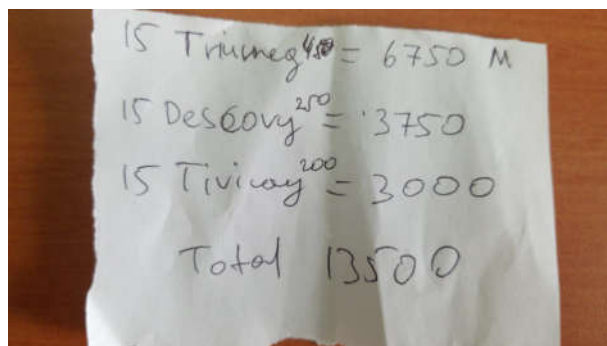 15 Triumeq 450 = 6750 M
15 Descovy 250 = 3750
15 Tivicay 200 = 3000
Total 13500